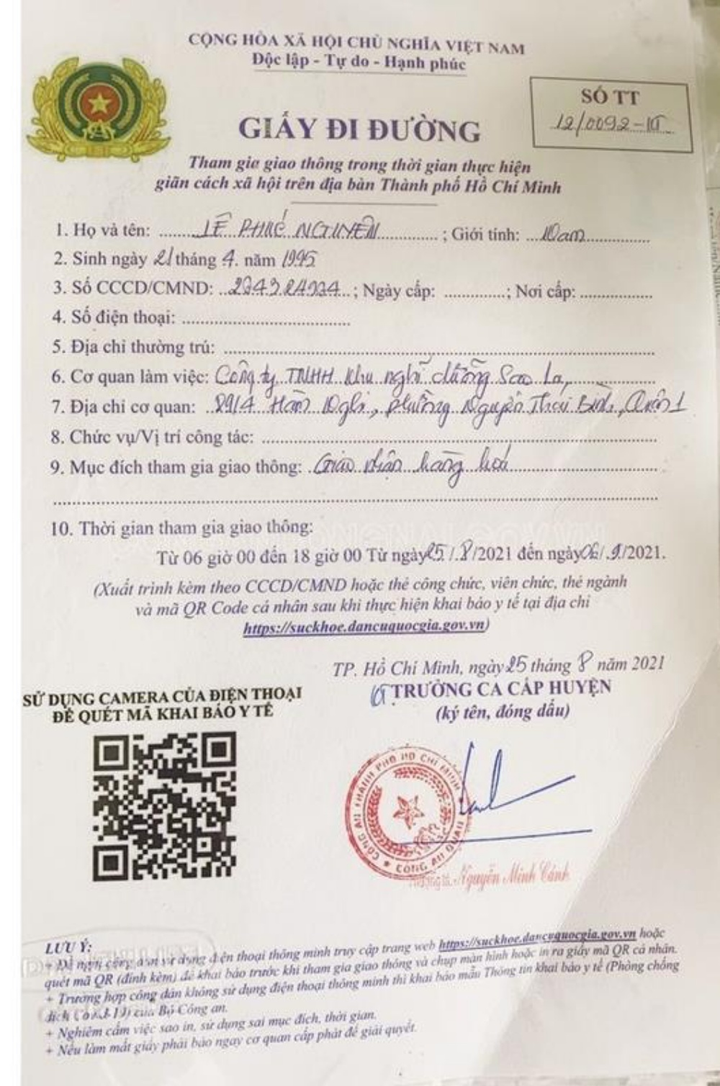 CỘNG HÒA XÃ HỘI CHỦ NGHĨA VIỆT NAM
Độc lập - Tự do - Hạnh phúc
SỐ TT
12/0092-
GIẤY ĐI ĐƯỜNG
Tham gia giao thông trong thời gian thực hiện
giãn cách xã hội trên địa bàn Thành phố Hồ Chí Minh
1. Họ và tên: LÊ PHÚC NGUYÊN; Giới tính: Nam
2. Sinh ngày 21 tháng 4. năm 1995
3. Số CCCD/CMND: ; Ngày cấp: ; Nơi cấp:
4. Số điện thoại:
5. Địa chỉ thường trú:
6. Cơ quan làm việc: Công ty TNHH Khu nghỉ dưỡng Sao La,
7. Địa chỉ cơ quan: Hàm Nghi, phường Nguyễn Thái Bình, Quận 1
8. Chức vụ/Vị trí công tác:
9. Mục đích tham gia giao thông: Giao nhận hàng hoá
10. Thời gian tham gia giao thông:
Từ 06 giờ 00 đến 18 giờ 00 Từ ngày 25/.8/2021 đến ngày 06/.9/2021.
(Xuất trình kèm theo CCCD/CMND hoặc thẻ công chức, viên chức, thẻ ngành
và mã QR Code cá nhân sau khi thực hiện khai báo y tế tại địa chỉ
https://suckhoe.dancuquocgia.gov.vn)
TP. Hồ Chí Minh, ngày 25 tháng 8 năm 2021
TRƯỞNG CA CẤP HUYỆN
(ký tên, đóng dấu)
SỬ DỤNG CAMERA CỦA ĐIỆN THOẠI
ĐỂ QUÉT MÃ KHAI BÁO Y TẾ
CÔNG AN THÀNH PHỐ HỒ CHÍ MINH
CÔNG AN QUẬN
Nguyễn Minh Cảnh
LƯU Ý:
+ Đề nghị công dân sử dụng điện thoại thông minh truy cập trang web https://suckhoe.dancuquocgia.gov.vn hoặc
quét mã QR (đính kèm) để khai báo trước khi tham gia giao thông và chụp màn hình hoặc in ra giấy mã QR cá nhân.
+ Trường hợp công dân không sử dụng điện thoại thông minh thì khai báo mẫu Thông tin khai báo y tế (Phòng chống
dịch Covid-19) của Bộ Công an.
+ Nghiêm cấm việc sao in, sử dụng sai mục đích, thời gian.
+ Nếu làm mất giấy phải báo ngay cơ quan cấp phát để giải quyết.